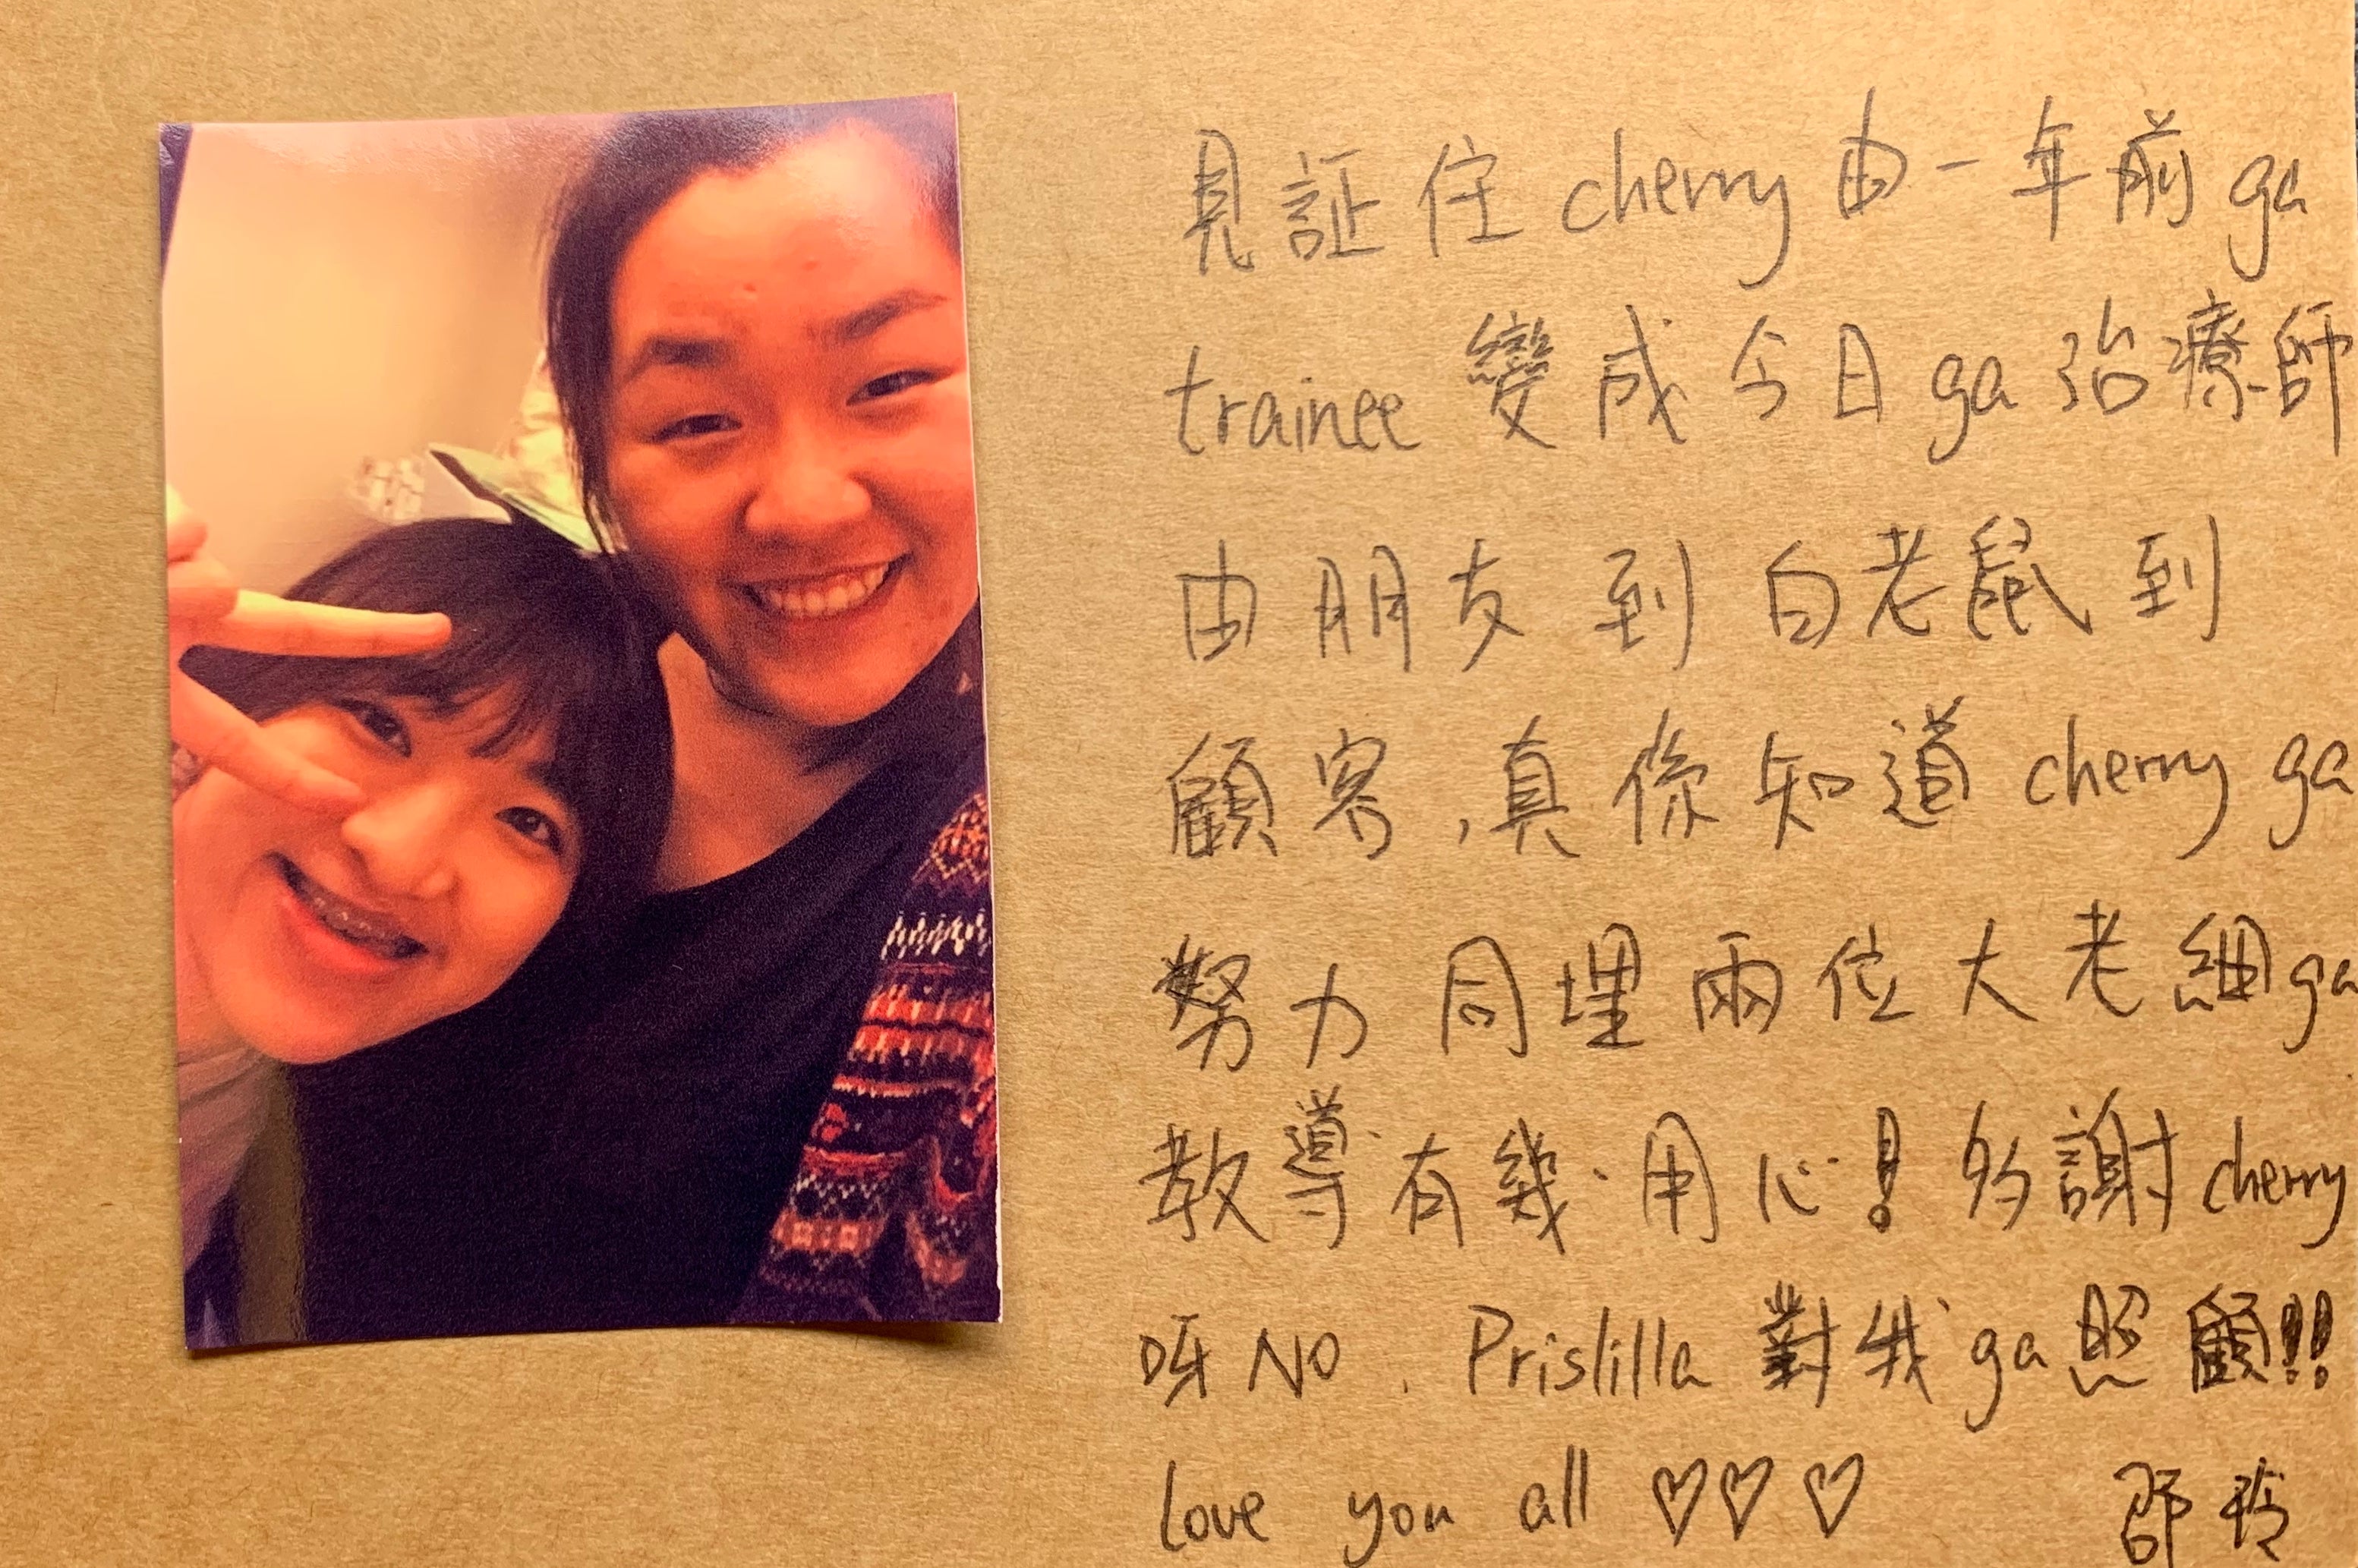 見証住cherry由一年前ga
trainee變成今日ga治療師
由朋友到白老鼠到
顧客,真係知道cherry ga
努力同埋兩位大老細ga
教導有幾用心!多謝cherry
呀NO. Prislilla對我ga照顧!!
love you all ♡♡♡ 邵玲